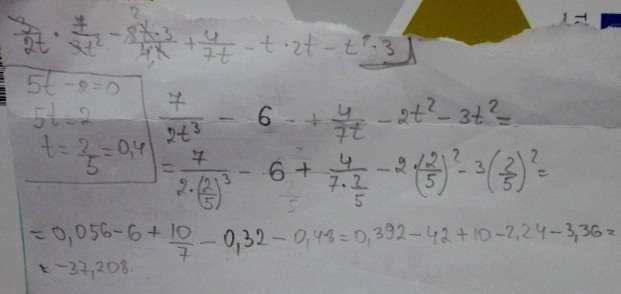 3/2t · 7/3t² − 8t·3/4t + 4/7t − t · 2t − t² · 3
5t − 2 = 0
5t = 2
t = 2/5 = 0,4
7/2t³ − 6 − + 4/7t − 2t² − 3t² =
= 7/2·(2/5)³ − 6 + 4/7·2/5 − 2·(2/5)² − 3(2/5)² =
= 0,056 − 6 + 10/7 − 0,32 − 0,48 = 0,392 − 42 + 10 − 2,24 − 3,36 =
= −37,208